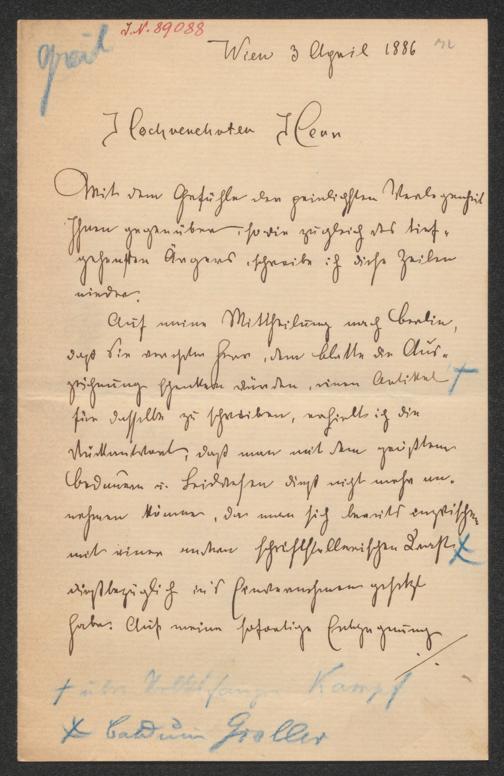 I.N. 89088
Wien 3 April 1886
Hochverehrter Herr
Mit dem Gefühle der peinlichsten Verlegenheit
Ihnen gegenüber, sowie zugleich des tief-
gehendsten Ärgers, schreibe ich diese Zeilen
nieder.
Auf meine Mittheilung nach Berlin,
daß Sie verehrter Herr, dem Blatte die Aus-
zeichnung schenken würden, einen Artikel †
für dasselbe zu schreiben, erhielt ich die
Rückantwort, daß man mit dem größten
Bedauern u. Leidwesen dieß nicht mehr an-
nehmen könne, da man sich bereits inzwischen
mit einer andern schriftstellerischen Kraft x
dießbezüglich in's Einvernehmen gesetzt
habe. Auf meine sofortige Entgegnung
† über Kampf
x Balduin Groller